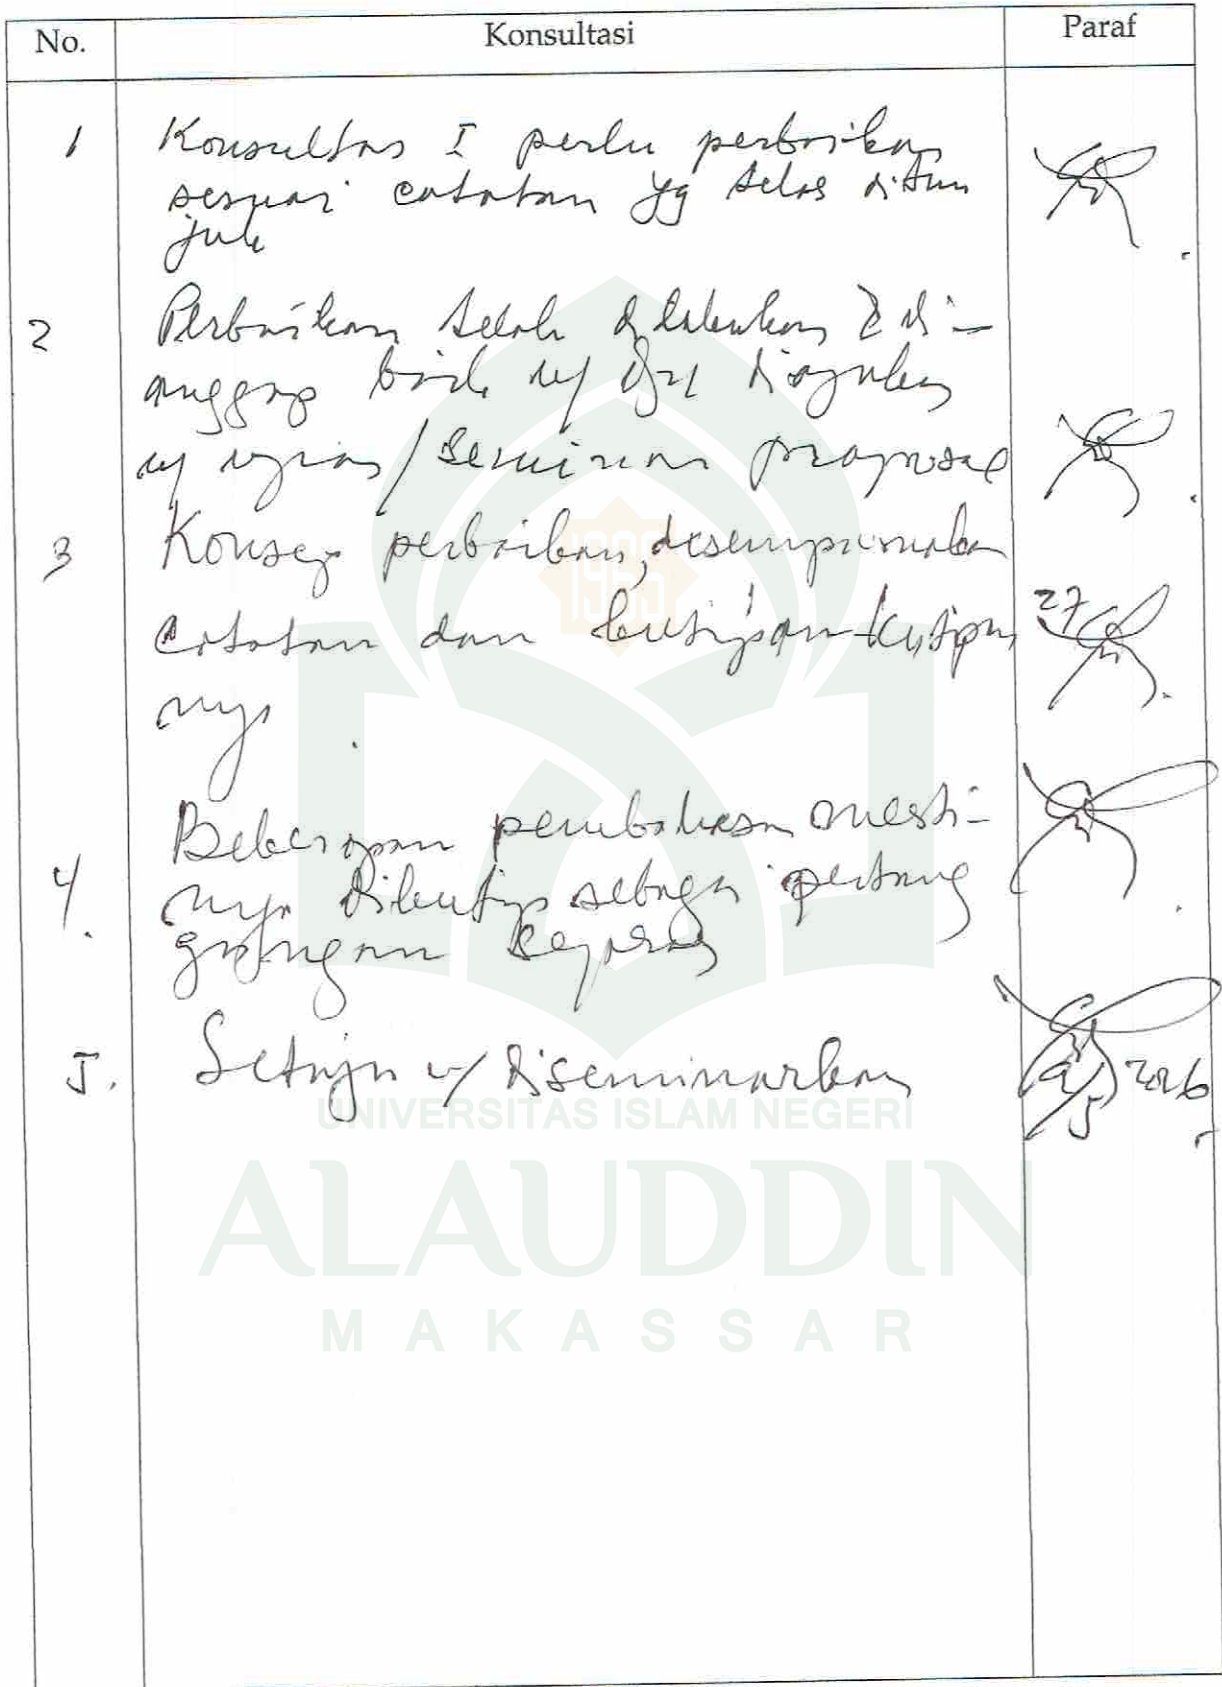 No. Konsultasi Paraf
1 Konsultas I perlu perbaikan
sesuai catatan yg telas ditun
juk
2 Perbaikan telah dilakukan & di-
anggap baik u/ diajukan
u/ ujian/seminar proposal
3 Konsep perbaikan, disempurnakan
catatan dan kutipan-kutipan 27
nya
4. Beberapan pembahasan mesti-
nya dikutip sebagai pertang
gungan
5. Setuju u/ diseminarkan 2016
5
1965
UNIVERSITAS ISLAM NEGERI
ALAUDDIN
MAKASSAR